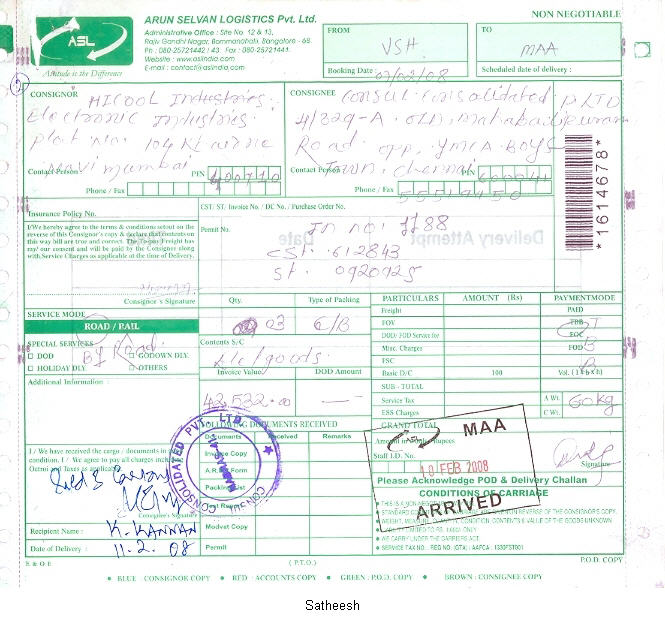 ASL
Attitude is the Difference
ARUN SELVAN LOGISTICS Pvt. Ltd.
Administrative Office : Site No. 12 & 13,
Rajiv Gandhi Nagar, Bommanahalli, Bangalore - 68.
Ph : 080-25721442 / 43 Fax : 080-25721441.
Website : www.aslindia.com
E-mail : contact@aslindia.com
NON NEGOTIABLE
FROM
VSH
Booking Date :
07/02/08
TO
MAA
Scheduled date of delivery :
CONSIGNOR
HICOOL Industries
Electronic Industries
Plot No.
Navi mumbai
Contact Person :
PIN
400710
Phone / Fax
CONSIGNEE
Consul Consolidated P LTD
4/329-A. OLD mahabalipuram
Road. opp. YMCA BOYS
Town. Chennai
Contact Person
PIN
600041
Phone / Fax
*1614678*
Insurance Policy No.
I/We hereby agree to the terms & conditions setout on the
reverse of this Consignor's copy & declare that contents on
this way bill are true and correct. The To-pay Freight has
my/ our consent and will be paid by the Consignee along
with Service Charges as applicable at the time of Delivery.
Consignor's Signature
CST/ ST/ Invoice No. / DC No. / Purchase Order No.
Permit No.
In no: 1188
CST. 612843
ST. 0920925
Delivery Attempt
Date
SERVICE MODE
ROAD / RAIL
SPECIAL SERVICES
DOD
GODOWN DLY.
HOLIDAY DLY
OTHERS
By Road
Additional Information :
Qty.
03
Type of Packing
C/B
Contents S/C
Ele/goods
Invoice Value
DOD Amount
42,532.00
PARTICULARS
AMOUNT (Rs)
PAYMENTMODE
Freight
PAID
FOV
TBB
DOD/ FOD Service for
FOC
Misc. Charges
FOD
FSC
Basic D/C
100
Vol. (l x b x h)
SUB - TOTAL
Service Tax
A Wt.
60kg
ESS Charges
C Wt.
GRAND TOTAL
Amount in words Rupees
Staff I.D. No.
Signature
FOLLOWING DOCUMENTS RECEIVED
Documents
Received
Remarks
Invoice Copy
A.R.E Form
Packing List
Test Report
Modvet Copy
Permit
CONSUL CONSOLIDATED PVT. LTD.
I / We have received the cargo / documents in
condition. I / We agree to pay all charges including
Octroi and Taxes as applicable
Consignee's Signature
Recipient Name :
K. KANNAN
Date of Delivery :
11.2.08
MAA
10 FEB 2008
ARRIVED
Please Acknowledge POD & Delivery Challan
CONDITIONS OF CARRIAGE
WE CARRY UNDER THE CARRIERS ACT.
E & O E
(P.T.O.)
P.O.D. COPY
BLUE : CONSIGNOR COPY
RED : ACCOUNTS COPY
GREEN : P.O.D. COPY
BROWN : CONSIGNEE COPY
Satheesh